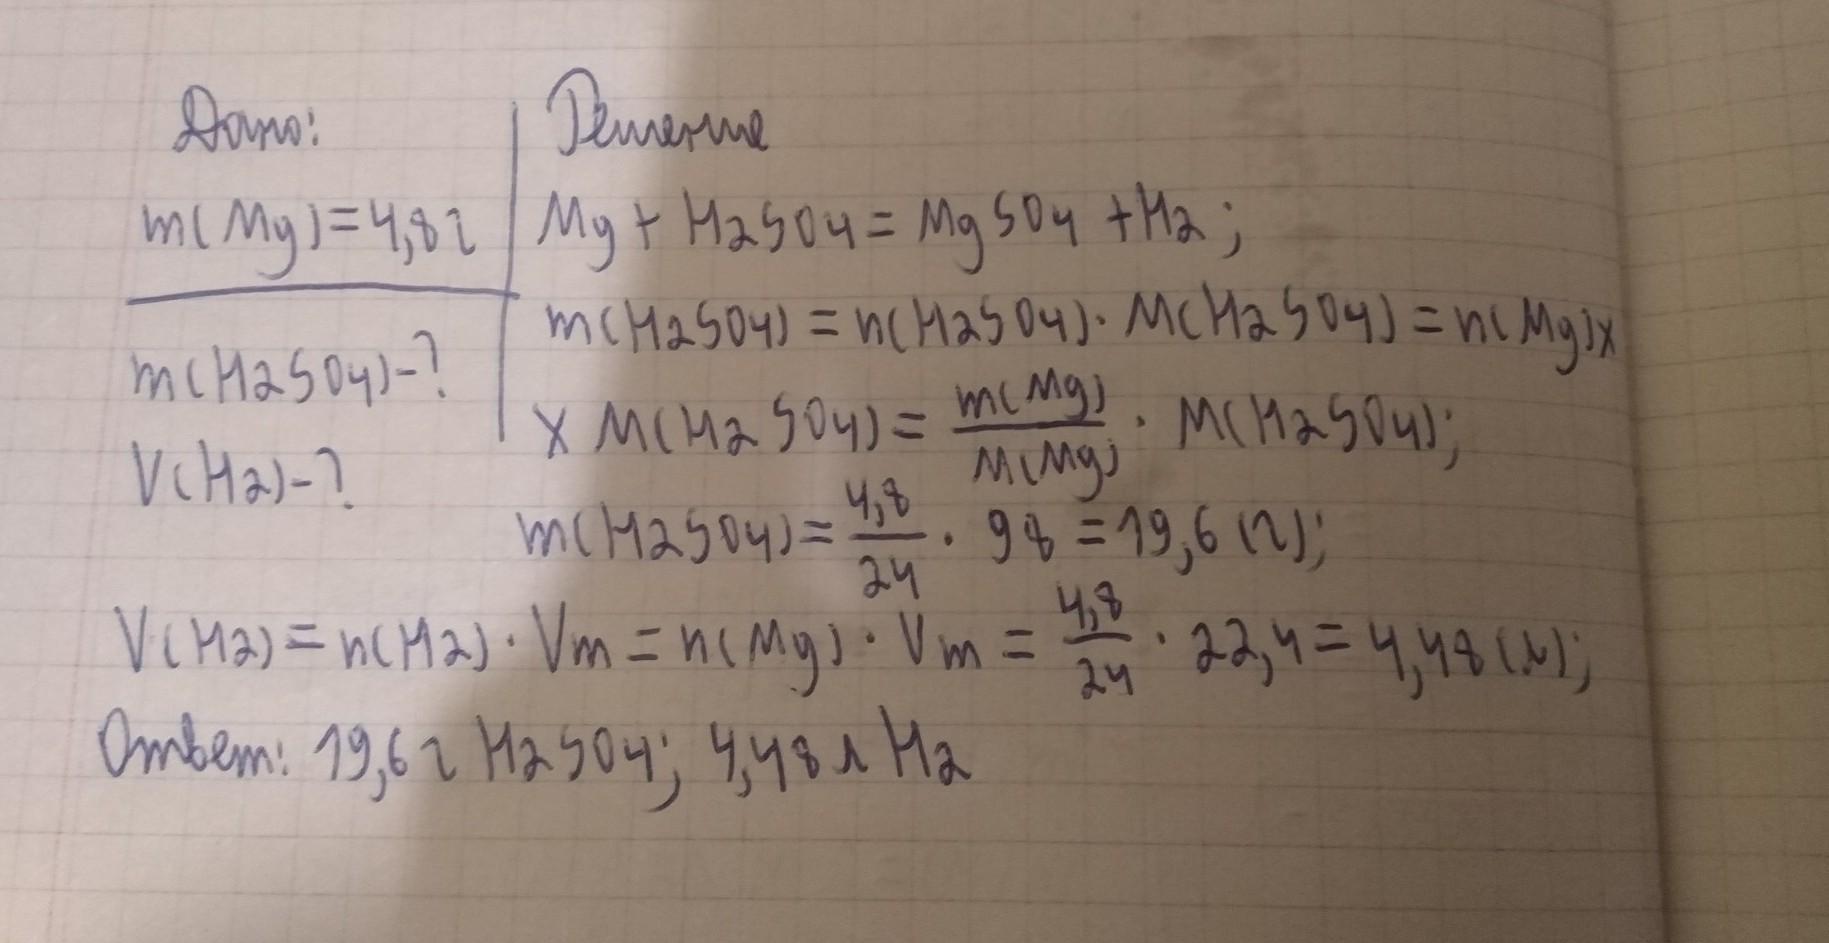 Дано:
m(Mg)=4,8г
m(H2SO4)-?
V(H2)-?
Решение
Mg + H2SO4 = MgSO4 + H2;
m(H2SO4) = n(H2SO4) · M(H2SO4) = n(Mg) x
x M(H2SO4) = m(Mg)/M(Mg) · M(H2SO4);
m(H2SO4) = 4,8/24 · 98 = 19,6 (г);
V(H2) = n(H2) · Vm = n(Mg) · Vm = 4,8/24 · 22,4 = 4,48 (л);
Ответ: 19,6 г H2SO4; 4,48 л H2